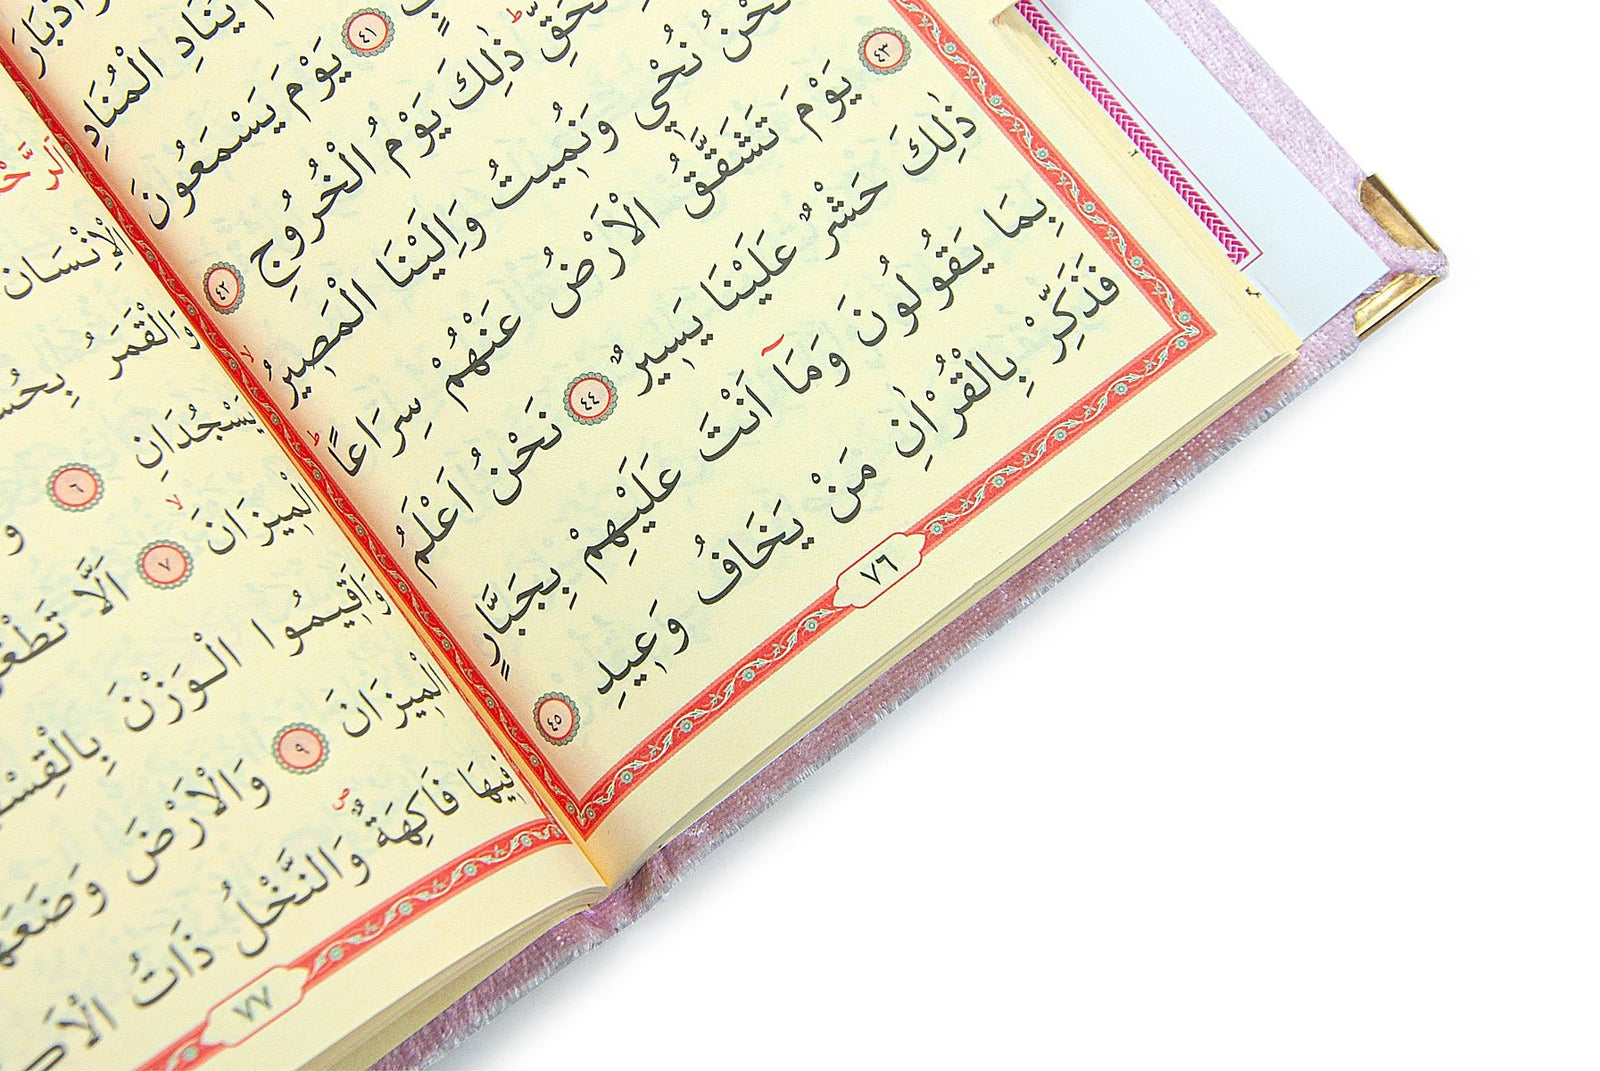 وَاَدْبَارَ
يُنَادِ الْمُنَادِ
٤١ يَوْمَ يَسْمَعُونَ
ذٰلِكَ يَوْمُ الْخُرُوجِ ٤٢
نَحْنُ نُحْيٖ وَنُمٖيتُ وَاِلَيْنَا الْمَصٖيرُ
٤٣ يَوْمَ تَشَقَّقُ الْاَرْضُ عَنْهُمْ سِرَاعًا
ذٰلِكَ حَشْرٌ عَلَيْنَا يَسٖيرٌ ٤٤ نَحْنُ اَعْلَمُ
بِمَا يَقُولُونَ وَمَٓا اَنْتَ عَلَيْهِمْ بِجَبَّارٍ
فَذَكِّرْ بِالْقُرْاٰنِ مَنْ يَخَافُ وَعٖيدِ ٤٥
٧٦
الْاِنْسَانَ
وَالْقَمَرُ
يَسْجُدَانِ ٦
الْمٖيزَانَ ٧ اَلَّا
وَاَقٖيمُوا الْوَزْنَ
الْمٖيزَانَ ٩ وَالْاَرْضَ
فٖيهَا فَاكِهَةٌ وَالنَّخْلُ ذَاتُ
٧٧